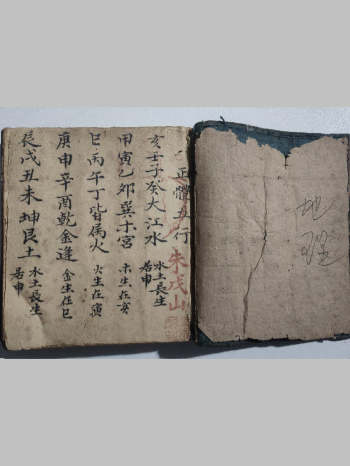 地理
正體五行
朱戊山
亥壬子癸大江水
水土長生
居申
甲寅乙卯巽木宮
木生在亥
巳丙午丁皆属火
火生在寅
庚申辛酉乾金逢
金生在巳
辰戌丑未坤艮土
水土長生
居申